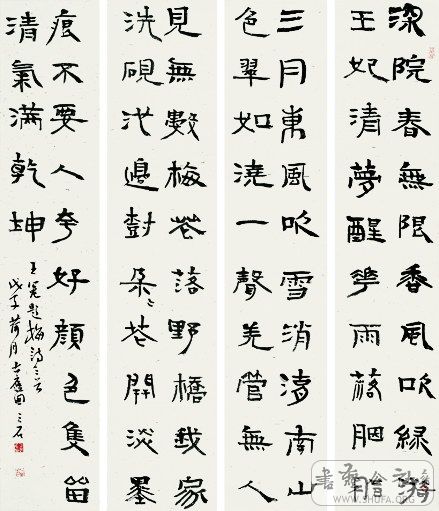 深院春無限香風吹綠漪
玉妃清夢醒華雨落胭脂
三月東風吹雪消湖南山
色翠如澆一聲羌管無人
見無數梅花落野橋我家
洗硯池邊樹朵朵花開淡墨
痕不要人夸好顏色隻留
清氣滿乾坤
王冕題梅詩三首
戊子荷月
三石
書藝公社
WWW.SHUFA.ORG